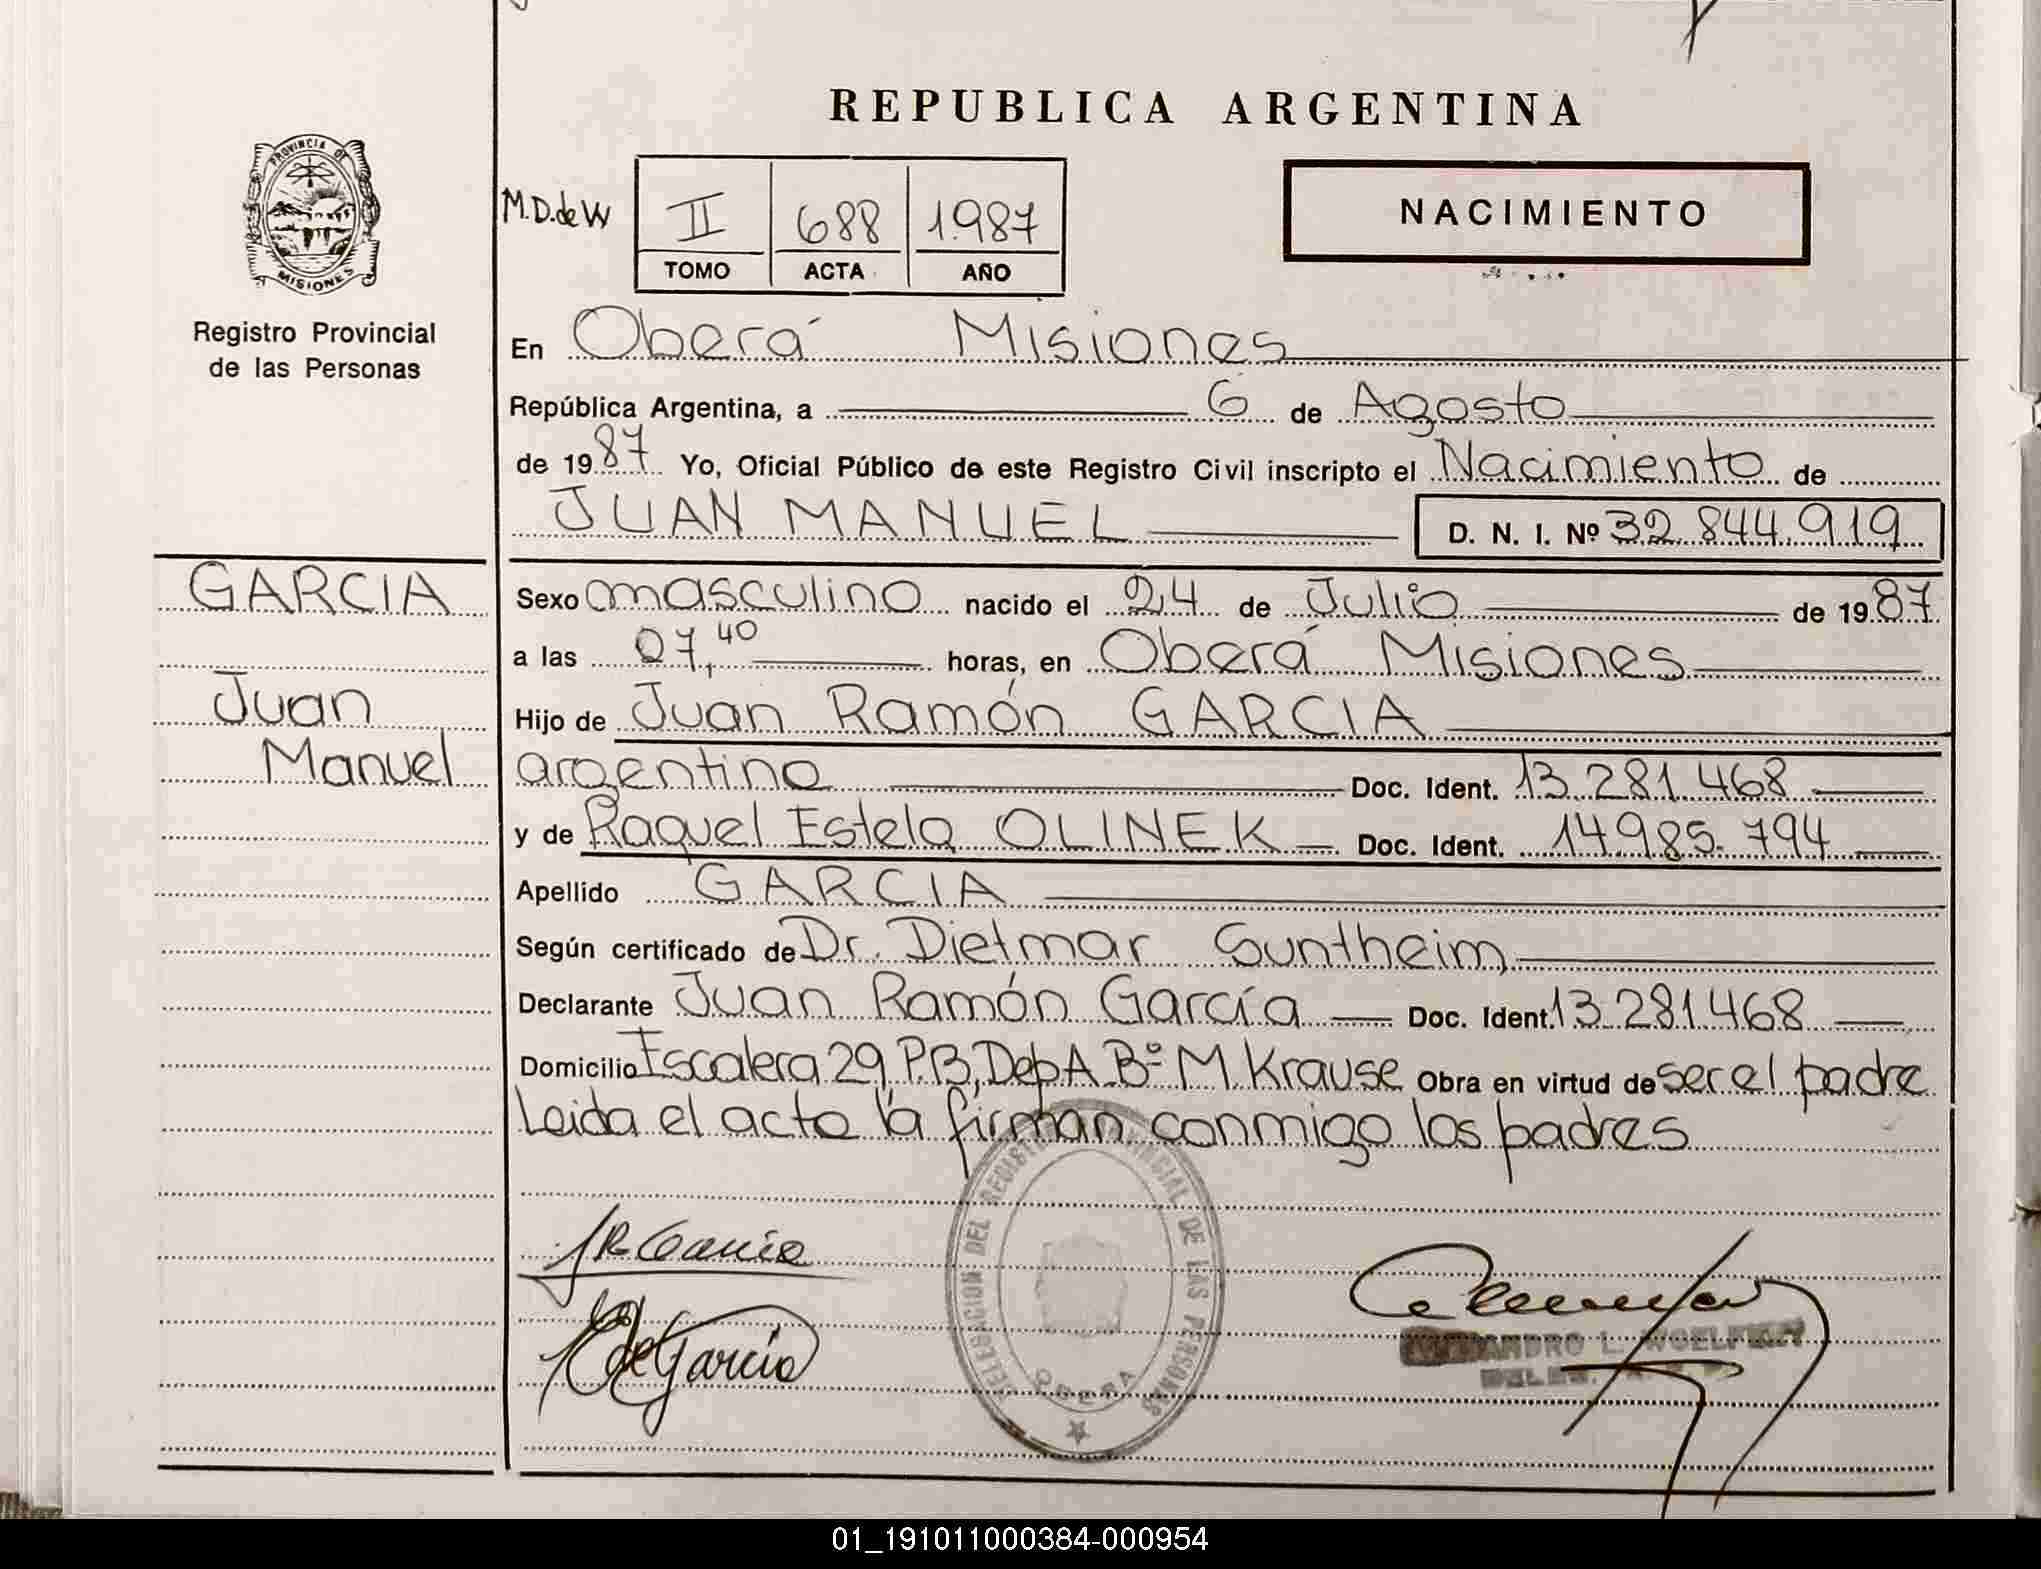 REPUBLICA ARGENTINA
PROVINCIA DE MISIONES
Registro Provincial
de las Personas
M.D.de W
II 688 1.987
TOMO ACTA AÑO
NACIMIENTO
En Oberá Misiones
República Argentina, a 6 de Agosto
de 1987 Yo, Oficial Público de este Registro Civil inscripto el Nacimiento de
JUAN MANUEL D. N. I. Nº 32.844.919
GARCIA
Juan
Manuel
Sexo masculino nacido el 24 de Julio de 1987
a las 07,40 horas, en Oberá Misiones
Hijo de Juan Ramón GARCIA
argentino Doc. Ident. 13.281.468
y de Raquel Estela OLINEK Doc. Ident. 14.985.794
Apellido GARCIA
Según certificado de Dr. Dietmar Suntheim
Declarante Juan Ramón García Doc. Ident. 13.281.468
Domicilio Escalera 29, P.B, Dep A. Bº M. Krause Obra en virtud de ser el padre
Leida el acta la firman conmigo los padres
JR Garcia
REdeGarcia
DELEGACION DEL REGISTRO PROVINCIAL DE LAS PERSONAS
OBERA
01_191011000384-000954